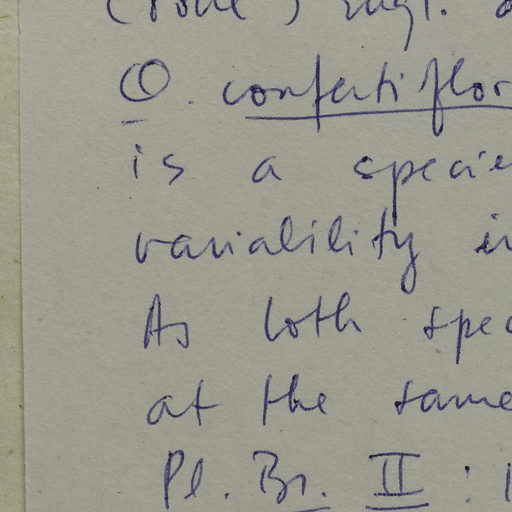 O. confertiflor
is a specie
variability in
As both spec
at the same
Pl. Br. II :